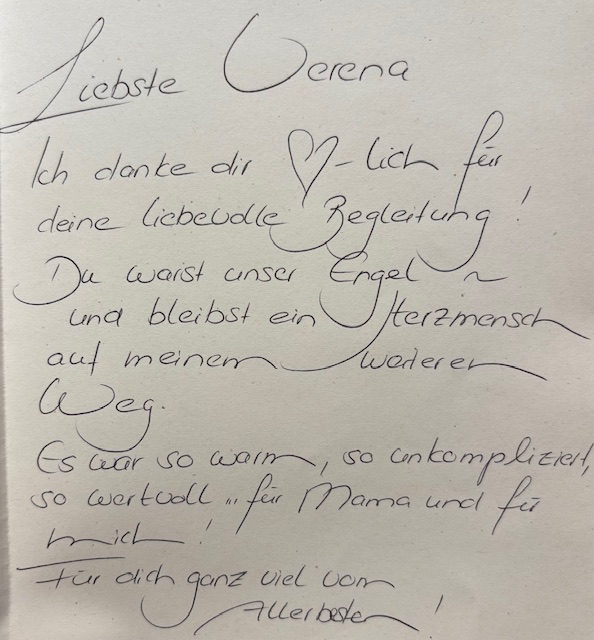 Liebste Verena
Ich danke dir ♡-lich für
deine liebevolle Begleitung!
Du warst unser Engel ~
und bleibst ein Herzmensch
auf meinem weiteren
Weg.
Es war so warm, so unkompliziert,
so wertvoll... für Mama und für
mich!
Für dich ganz viel vom
Allerbesten!